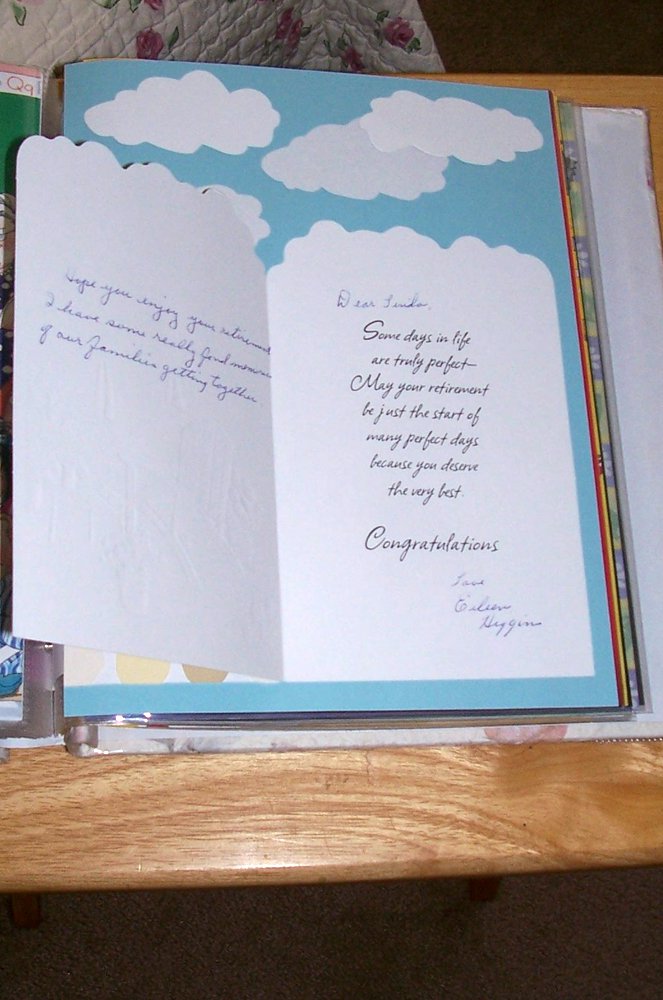 Qq
Hope you enjoy your retirement
I have some really fond memories
of our families getting together
Dear Linda,
Some days in life
are truly perfect—
May your retirement
be just the start of
many perfect days
because you deserve
the very best.
Congratulations
Love
Eileen
Higgins